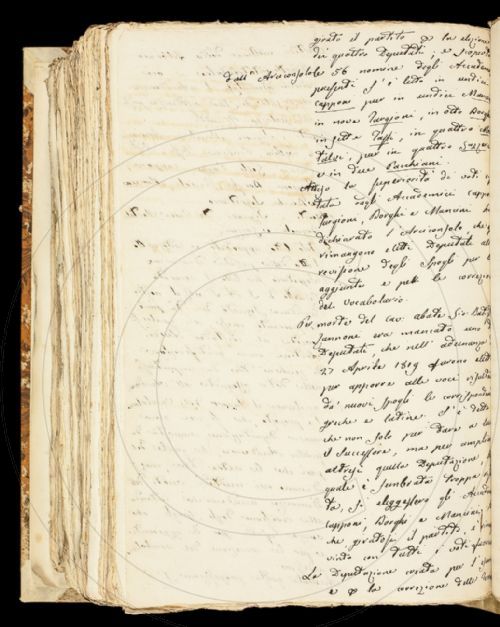 girato il partito p la elezione
dei quattro Deputati; e scopert
dall'Arciconsolo le 56 nomine degli Accadem
presenti s'è letto in undici
Capponi pur in undice Manci
in nove Targioni, in otto Borgh
in sette Tassi, in quattro
pur in quattro
e in due Becchiani.
Atteso la superiorità di voti
tata dagli Accademici Cappo
Targioni, Borghi e Mancini ha
dichiarato l'Arciconsolo, che
rimangono eletti Deputati all
revisione degli Spogli per l
aggiunte e pelle correzio
del Vocabolario.
Per morte del cav. abate Gio. Bat
Zannoni era mancato uno
Deputati, che nell'adunanza
27 Aprile 1819 furono eletti
per apporre alle voci
da' nuovi spogli le corrisponde
greche e latine. S'è detto
che non solo per dare a lui
il Successore, ma per ampliar
altresì quella Deputazione,
quale è sembrata troppo
ta, si eleggessero gli Accade
Capponi, Borghi e Mancini;
che giratosi il partito, è rima
vinto con tutti i voti
La Deputazione creata per l'
e p la correzione dell